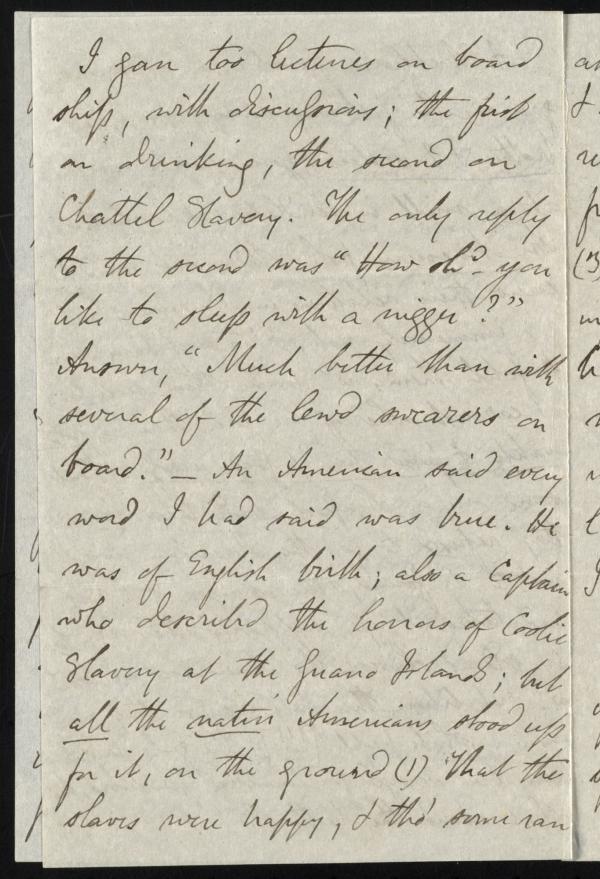 I gav two lectures on board
ship, with discussions; the first
on drinking, the second on
Chattel Slavery. The only reply
to the second was "How shd. you
like to sleep with a nigger?"
Answer, "Much better than with
several of the lewd swearers on
board." — An American said every
word I had said was true. He
was of English birth; also a Captain
who described the horrors of Coolie
Slavery at the Guano Islands; but
all the native Americans stood up
for it, on the ground (1) That the
slaves were happy, & tho' some ran